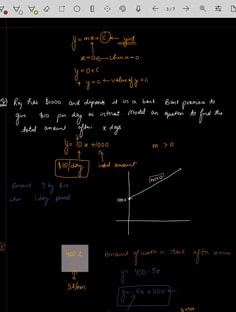 3/7
y = mx + c → yint
x = 0 ← when x = 0
y = 0 + c
y = c ← value of y = c
Raj has $1000 and deposits it in a bank Bank promises to
give $10 per day as interest model an equation to find the
total amount after x days
y = 10x + 1000
m > 0
$10/day
initial amount
Amount ↑ by $10
when 1 day passed
m>0
1000
400 L
Amount of water in tank after x mins
5L/min
y = 400 - 5x
y = -5x + 400